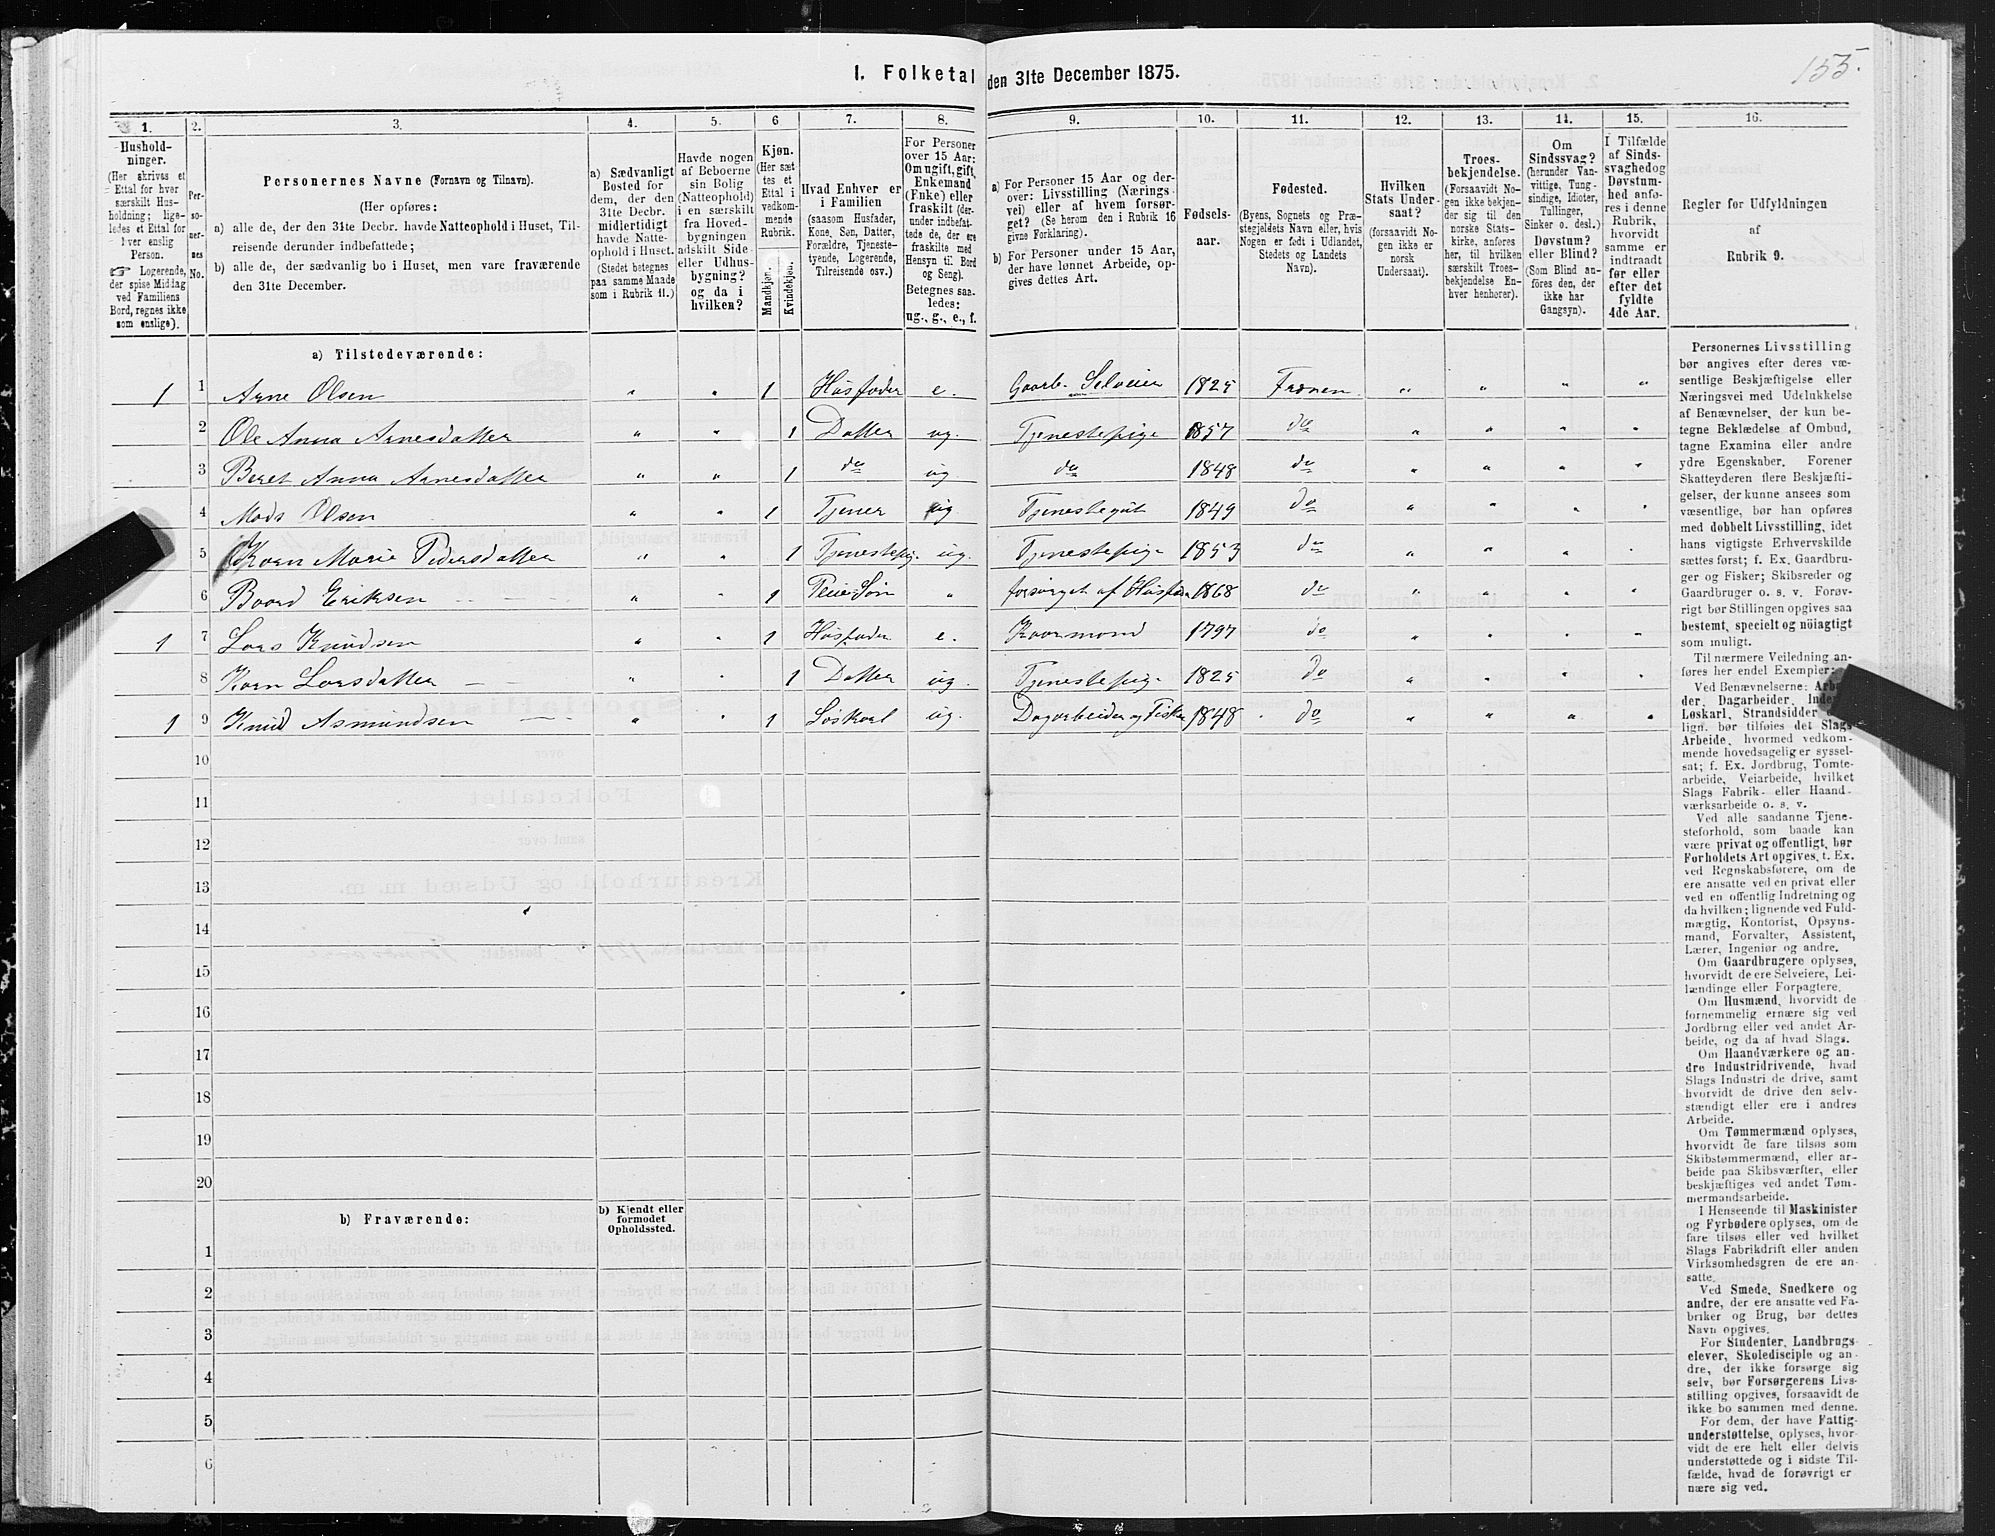 155.
1. Folketal den 31te December 1875.
1. 2. 3. 4. 5. 6 7. 8. 9. 10. 11. 12. 13. 14. 15. 16.
Hushold-
ninger.
(Her skrives et
Ettal for hver
særskilt Hus-
holdning; lige-
ledes et Ettal for
hver enslig
Person.
☞ Logerende,
der spise Middag
ved Familiens
Bord, regnes ikke
som enslige).
Per-
so-
ner-
nes
No.
Personernes Navne (Fornavn og Tilnavn).
(Her opføres:
a) alle de, der den 31te Decbr. havde Natteophold i Huset, Til-
reisende derunder indbefattede;
b) alle de, der sædvanlig bo i Huset, men vare fraværende
den 31te December.
a) Sædvanligt
Bosted for
dem, der den
31te Decbr.
midlertidigt
havde Natte-
ophold i Huset.
(Stedet betegnes
paa samme Maade
som i Rubrik 11.)
Havde nogen
af Beboerne
sin Bolig
(Natteophold)
i en særskilt
fra Hoved-
bygningen
adskilt Side-
eller Udhus-
bygning?
og da i
hvilken?
Kjøn.
(Her sæt-
tes et
Ettal i
vedkom-
mende
Rubrik.
Mandkjøn.
Kvindekjøn.
Hvad Enhver er
i Familien
(saasom Husfader,
Kone, Søn, Datter,
Forældre, Tjeneste-
tyende, Logerende,
Tilreisende osv.)
For Personer
over 15 Aar:
Om ugift, gift,
Enkemand
(Enke) eller
fraskilt (der-
under indbefat-
tede de, der ere
fraskilte med
Hensyn til Bord
og Seng).
Betegnes saa-
ledes:
ug., g., e., f.
a) For Personer 15 Aar og der-
over: Livsstilling (Nærings-
vei) eller af hvem forsør-
get? (Se herom den i Rubrik 16
givne Forklaring).
b) For Personer under 15 Aar,
der have lønnet Arbeide, op-
gives dettes Art.
Fødsels-
aar.
Fødested.
(Byens, Sognets og Præ-
stegjeldets Navn eller, hvis
Nogen er født i Udlandet,
Stedets og Landets
Navn).
Hvilken
Stats Under-
saat?
(forsaavidt No-
gen ikke er
norsk
Undersaat).
Troes-
bekjendelse.
(Forsaavidt No-
gen ikke bekjen-
der sig til den
norske Stats-
kirke, anføres
her, til hvilken
særskilt Troes-
bekjendelse En-
hver henhører).
Om
Sindssvag?
(herunder Van-
vittige, Tung-
sindige, Idioter,
Tullinger,
Sinker o. desl.)
Døvstum?
eller Blind?
(Som Blind an-
føres den, der
ikke har
Gangsyn).
I Tilfælde
af Sinds-
svaghed og
Døvstum-
hed anfø-
res i denne
Rubrik,
hvorvidt
samme er
indtraadt
før eller
efter det
fyldte
4de Aar.
Regler for Udfyldningen
af
Rubrik 9.
a) Tilstedeværende:
1 1 Arne Olsen " " 1 Husfader e. Gaardb. Selveier 1825 Frænen " " " "
2 Ole Anna Arnesdatter " " 1 Datter ug. Tjenestepige 1857 do " " " "
3 Beret Anna Arnesdatter " " 1 do ug. do 1848 do " " " "
4 Mads Olsen " " 1 Tjener ug Tjenestegut 1849 do " " " "
5 Karn Marie Pedersdatter " " 1 Tjenestepig. ug. Tjenestepige 1853 do " " " "
6 Baard Eriksen " " 1 Pleie Søn " forsørget af Husfad 1868 do " " " "
1 7 Lars Knudsen " " 1 Husfader e. Kaarmand 1797 do " " " "
8 Karn Larsdatter " " 1 Datter ug. Tjenestepige 1825 do " " " "
1 9 Knud Asmundsen " " 1 Løskarl ug. Dagarbeider og Fisker 1848 do " " " "
10
11
12
13
14
15
16
17
18
19
20
b) Fraværende:
b) Kjendt eller
formodet
Opholdssted.
1
2
3
4
5
6
Personernes Livsstilling
bør angives efter deres væ-
sentlige Beskjæftigelse eller
Næringsvei med Udelukkelse
af Benævnelser, der kun be-
tegne Beklædelse af Ombud,
tagne Examina eller andre
ydre Egenskaber. Forener
Skatteyderen flere Beskjæfti-
gelser, der kunne ansees som
væsentlige, bør han opføres
med dobbelt Livsstilling, idet
hans vigtigste Erhvervskilde
sættes først; f. Ex. Gaardbru-
ger og Fisker; Skibsreder og
Gaardbruger o. s. v. Forøv-
rigt bør Stillingen opgives saa
bestemt, specielt og nöiagtigt
som muligt.
Til nærmere Veiledning an-
føres her endel Exempler:
Ved Benævnelserne: Arbei-
der, Dagarbeider, Inder
Løskarl, Strandsidder
lign. bør tilføies det Slags
Arbeide, hvormed vedkom-
mende hovedsagelig er syssel-
sat; f. Ex. Jordbrug, Tomte-
arbeide, Veiarbeide, hvilket
Slags Fabrik- eller Haand-
værksarbeide o. s. v.
Ved alle saadanne Tjene-
steforhold, som baade kan
være privat og offentligt, bør
Forholdets Art opgives, t. Ex.
ved Regnskabsførere, om de
ere ansatte ved en privat eller
ved en offentlig Indretning og
da hvilken; lignende ved Fuld-
mægtig, Kontorist, Opsyns-
mand, Forvalter, Assistent,
Lærer, Ingeniør og andre.
Om Gaardbrugere oplyses,
hvorvidt de ere Selveiere, Lei-
lændinge eller Forpagtere.
Om Husmænd, hvorvidt de
fornemmelig ernære sig ved
Jordbrug eller ved andet Ar-
beide, og da af hvad Slags.
Om Haandværkere og an-
dre Industridrivende, hvad
Slags Industri de drive, samt
hvorvidt de drive den selv-
stændigt eller ere i andres
Arbeide.
Om Tømmermænd oplyses,
hvorvidt de fare tilsøs som
Skibstømmermænd, eller ar-
beide paa Skibsværfter, eller
beskjæftiges ved andet Tøm-
mermandsarbeide.
I Henseende til Maskinister
og Fyrbødere oplyses, om de
fare tilsøs eller ved hvilket
Slags Fabrikdrift eller anden
Virksomhedsgren de ere an-
satte.
Ved Smede, Snedkere og
andre, der ere ansatte ved Fa-
briker og Brug, bør dettes
Navn opgives.
For Studenter, Landbrugs-
elever, Skoledisciple og an-
dre, der ikke forsørge sig
selv, bør Forsørgerens Livs-
stilling opgives, forsaavidt de
ikke bo sammen med denne.
For dem, der have Fattig-
understøttelse, oplyses, hvor-
vidt de ere helt eller delvis
understøttede og i sidste Til-
fælde, hvad de forøvrigt er
nære sig ved.